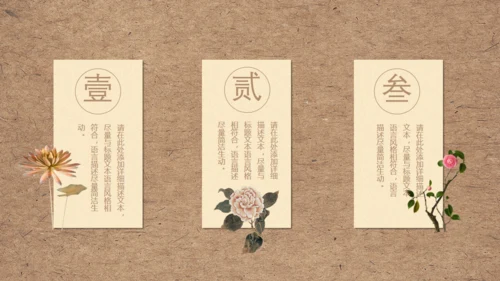 壹
请在此处添加详细描述文本，
尽量与标题文本语言风格相
符合，语言描述尽量简洁生
动。
贰
请在此处添加详细
描述文本，尽量与
标题文本语言风格
相符合，语言描述
尽量简洁生动。
叁
请在此处添加详细描述
文本，尽量与标题文本
语言风格相符合，语言
描述尽量简洁生动。